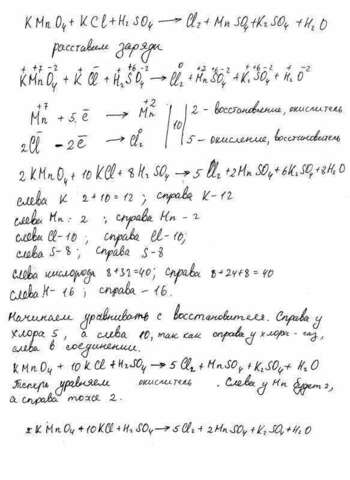 KMnO₄ + KCl + H₂SO₄ → Cl₂ + MnSO₄ + K₂SO₄ + H₂O
расставим заряды
K⁺Mn⁺⁷O₄⁻² + K⁺Cl⁻ + H₂⁺S⁺⁶O₄⁻² → Cl₂⁰ + Mn⁺²S⁺⁶O₄⁻² + K₂⁺S⁺⁶O₄⁻² + H₂⁺O⁻²
Mn⁺⁷ + 5ē → Mn⁺² | 10 | 2 - восстановление, окислитель
2Cl⁻ - 2ē → Cl₂⁰ | 5 - окисление, восстановитель
2KMnO₄ + 10KCl + 8H₂SO₄ → 5Cl₂ + 2MnSO₄ + 6K₂SO₄ + 8H₂O
слева K 2+10=12; справа K-12
слева Mn: 2; справа Mn - 2
слева Cl-10; справа Cl-10;
слева S-8; справа S-8
слева кислорода 8+32=40; справа 8+24+8=40
слева H-16; справа -16.
Начинаем уравнивать с восстановителя. Справа у
хлора 5, а слева 10, так как справа у хлора - газ,
слева в соединении.
KMnO₄ + 10KCl + H₂SO₄ → 5Cl₂ + MnSO₄ + K₂SO₄ + H₂O
Теперь уравняем окислитель. Слева у Mn будет 2,
а справа тоже 2.
KMnO₄ + 10KCl + H₂SO₄ → 5Cl₂ + 2MnSO₄ + K₂SO₄ + H₂O